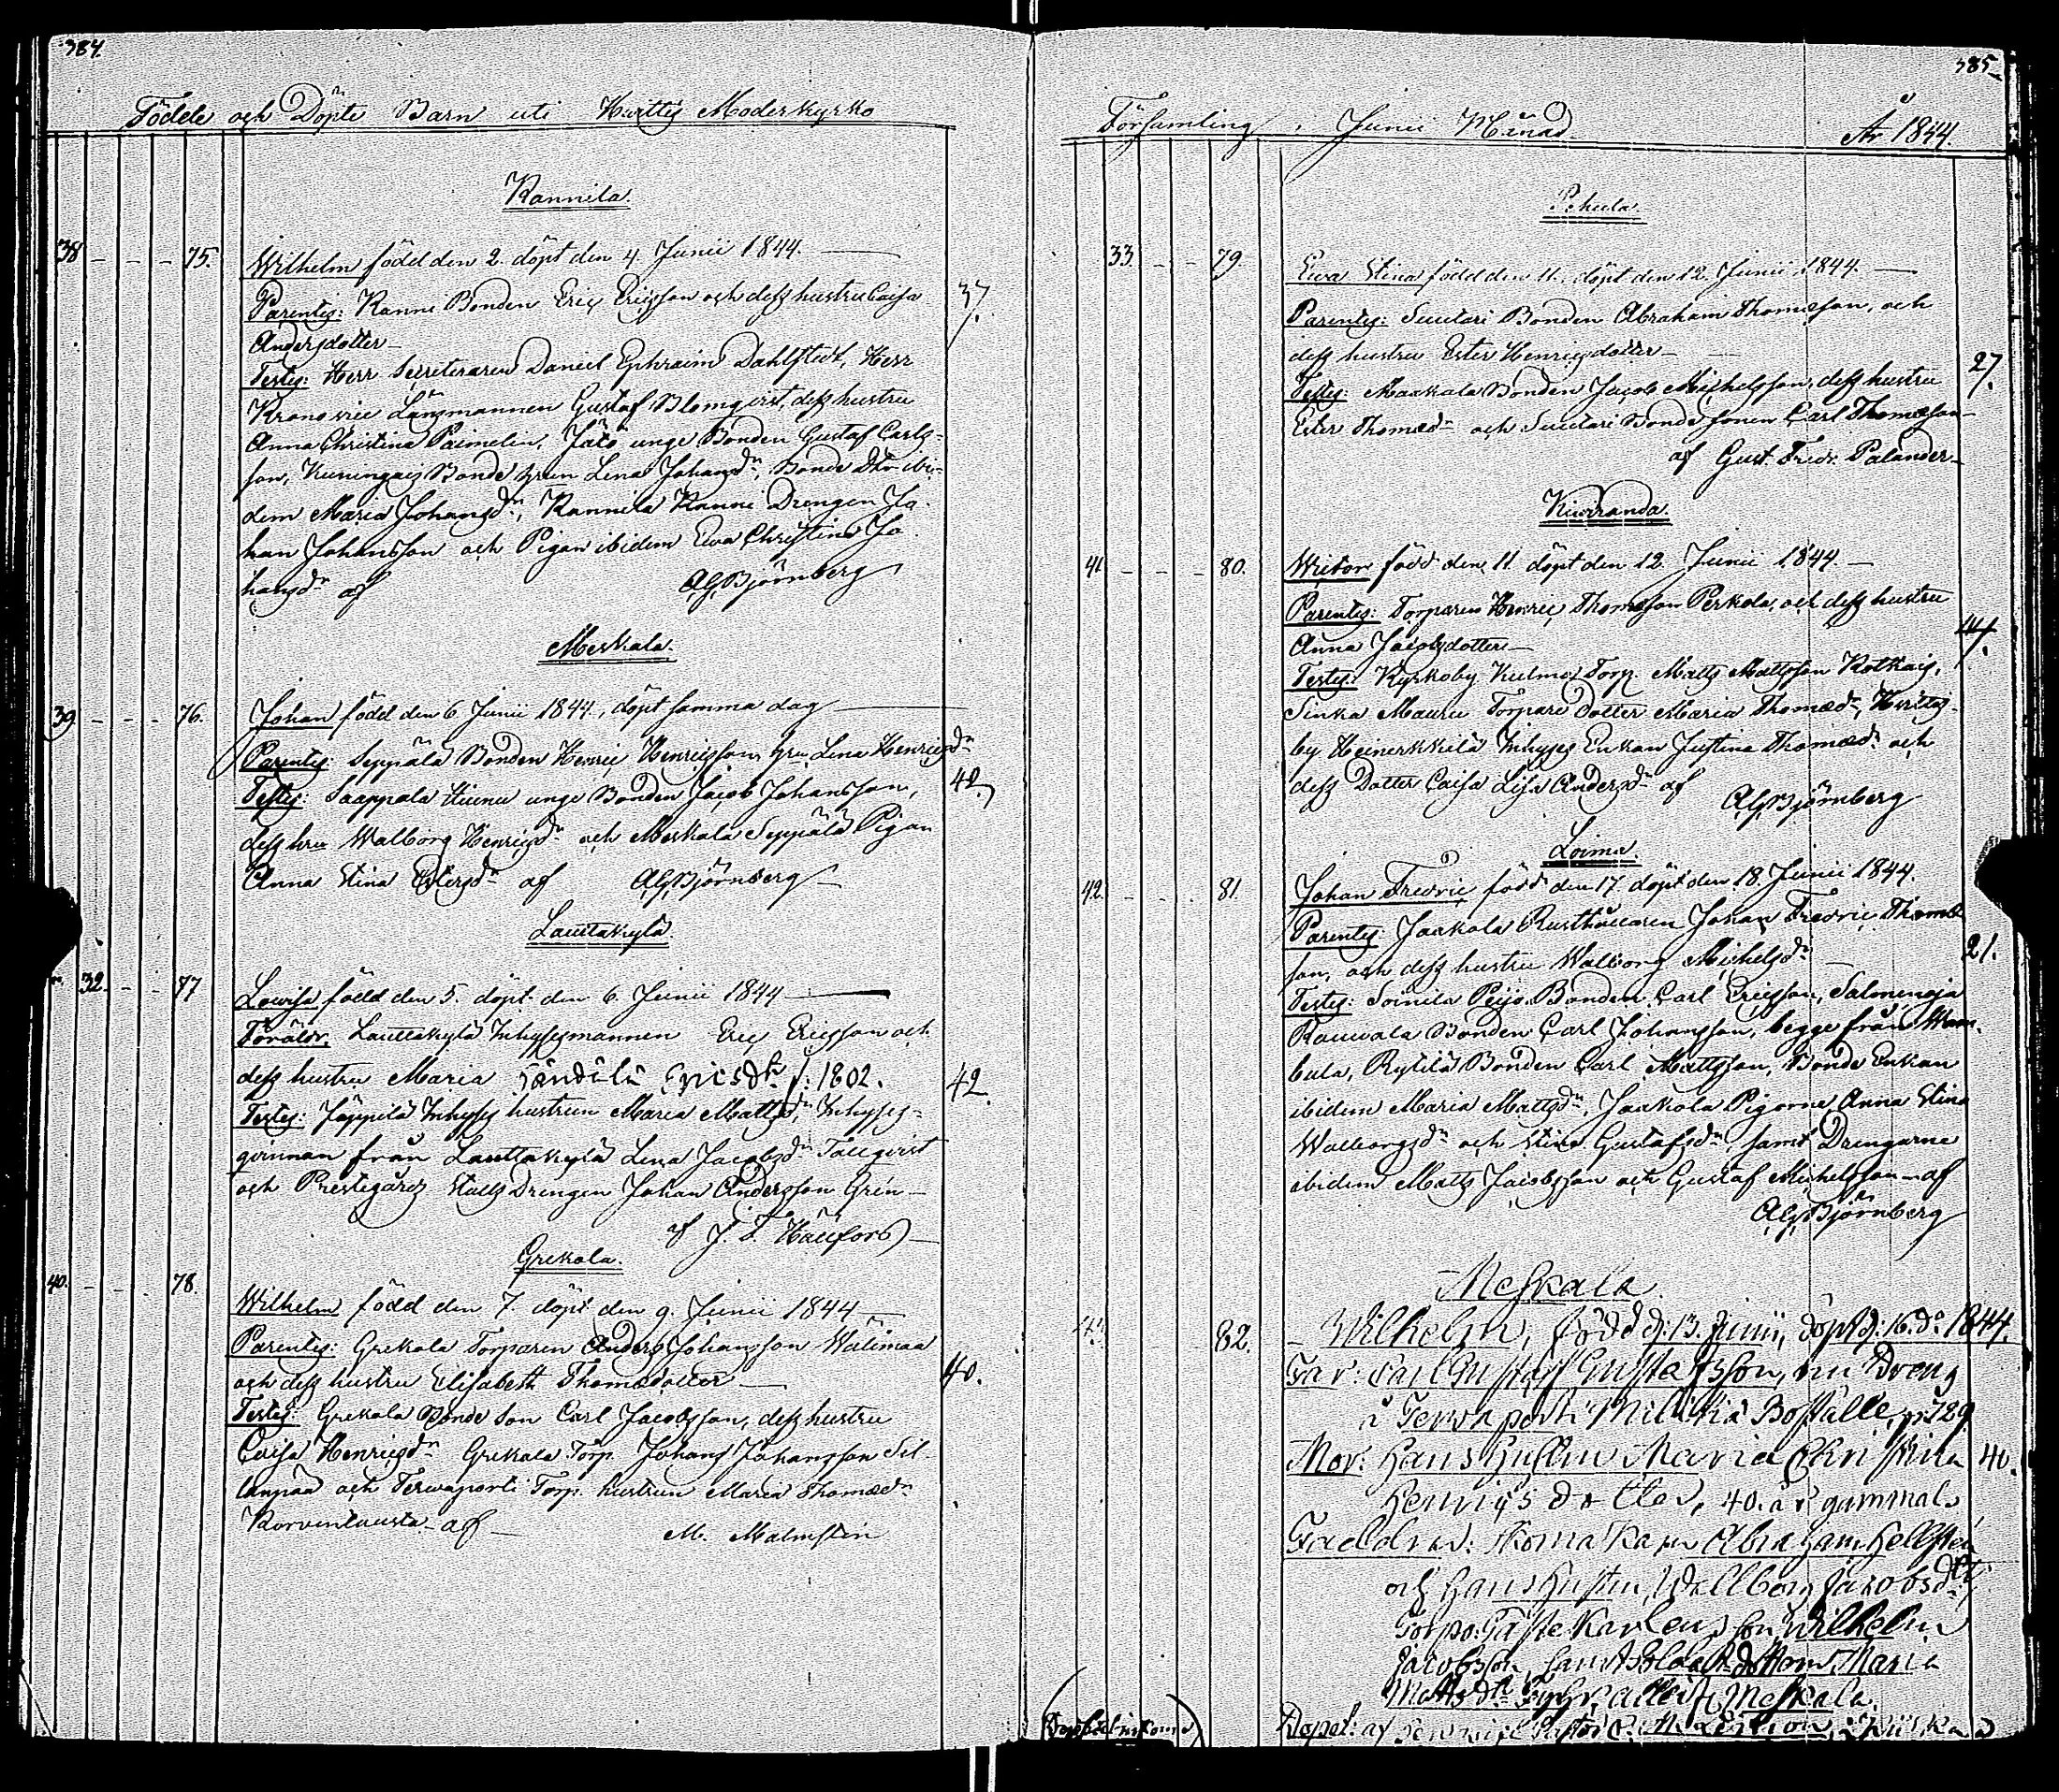 384.
Födde och Döpte Barn uti Huittis Moderkyrko
Kannila.
38 - - - 75. Wilhelm född den 2. döpt den 4 Junii 1844.
Parentes: Kanni Bonden Eric Ericsson och dess hustru Caisa 37.
Andersdotter
Testes: Herr Secreteraren Daniel Ephraim Dahlstedt, Herr
Krono Länsmannen Gustaf Blomqvist, dess hustru
Anna Christina Paimelin, unge Bonden Gustaf Carls-
son, Kuningas Bonde hrun Lena Johansdr, Bonde Dtr ibi-
dem Maria Johansdr, Kannila Kanni Drengen Jo-
han Johansson och Pigan ibidem Ewa Christina Jo-
hansdr af Björnberg
Meskala.
39 - - - 76. Johan född den 6 Junii 1844, döpt samma dag
Parentes: Seppälä Bonden Henric Henricsson, hru Lena Henricsdr
Testes: Saappala unge Bonden Jacob Johansson, 42
dess hru Walborg Henricsdr och Meskala Seppälä Pigan
Anna Stina af Björnberg
Lauttakylä.
32. - - 77 Lowisa född den 5. döpt den 6. Junii 1844
Föräldr. Lauttakylä Inhysesmannen Eric Ericsson och
dess hustru Maria Ericsdr f: 1802. 42.
Testes: Jäppilä Inhyses hustrun Maria Mattsdr, Inhyses-
qvinnan från Lauttakylä Lena Jacobsdr Tallqvist
och Prestegårds Stalls Drengen Johan Andersson Grén
af J. F. Hällfors
Grekola.
40. - - - 78. Wilhelm född den 7. döpt den 9. Junii 1844
Parentes: Grekola Torparen Anders Johansson Wälimaa
och dess hustru Elisabeth Thomædotter 40.
Testes: Grekola Bonde Son Carl Jacobsson, dess hustru
Caisa Henricsdr Grekola Torp. Johans Johansson Sil-
lanpää och Terwaporti Torp. hustrun Maria Thomædr
Korvenlausta af M. Malmstén
385
Församling i Junii Månad År 1844.
Pehula.
33. - - 79. Ewa Stina född den 11. döpt den 12. Junii 1844.
Parentes: Suutari Bonden Abraham Thomæsson, och
dess hustru Ester Henricsdotter
Testes: Maskala Bonden Jacob Michelsson, dess hustru 27.
Ester Thomædr och Suutari Bonde Sonen Carl Thomæsson
af Gust. Fredr. Palander
Kiviranda.
41 - - - 80. Wictor född den 11 döpt den 12. Junii 1844.
Parentes: Torparen Henric Thomæsson Perkola, och dess hustru
Anna Jacobsdotter 44.
Testes: Kyrkoby Kulma Torp. Matts Mattsson Kotkais,
Sinka Mauru Torpare Dotter Maria Thomædr, Huittis-
by Heinerkkilä Inhyses Enkan Justina Thomædr och
dess Dotter Caisa Lisa Andersdr af Björnberg
Loima.
42. - - . 81. Johan Fredric född den 17. döpt den 18. Junii 1844.
Parentes: Jaakola Rusthållaren Johan Fredric Thomæ-
son, och dess hustru Walborg Michelsdr 21.
Testes: Soinila Peijo Bonden Carl Ericsson, Salmenoja
Rauwala Bonden Carl Johansson, begge från Wam-
bula, Rytilä Bonden Carl Mattsson, Bonde Enkan
ibidem Maria Mattsdr, Jaakola Pigorne Anna Stina
Walborgsdr och Stina Gustafsdr, samt Drengarne
ibidem Matts Jacobsson och Gustaf Michelsson af
Björnberg
Meskala.
82. Wilhelm, född d: 13. Junii, döpt d: 16. do 1844.
Far: Carl Gustaf Gustafsson, nu Dreng
å Terwaporti Militiæ Boställe, p. 729
Mor: hans hustru Maria Christina 40.
Henricsdotter, 40. år gammal
Faddrar: Abraham Hellsten
och hans hustru Wallborg Jacobsdr
son Wilhelm
Jacobsson, samt Maria
Mattsdr Meskala.
Döpt: af